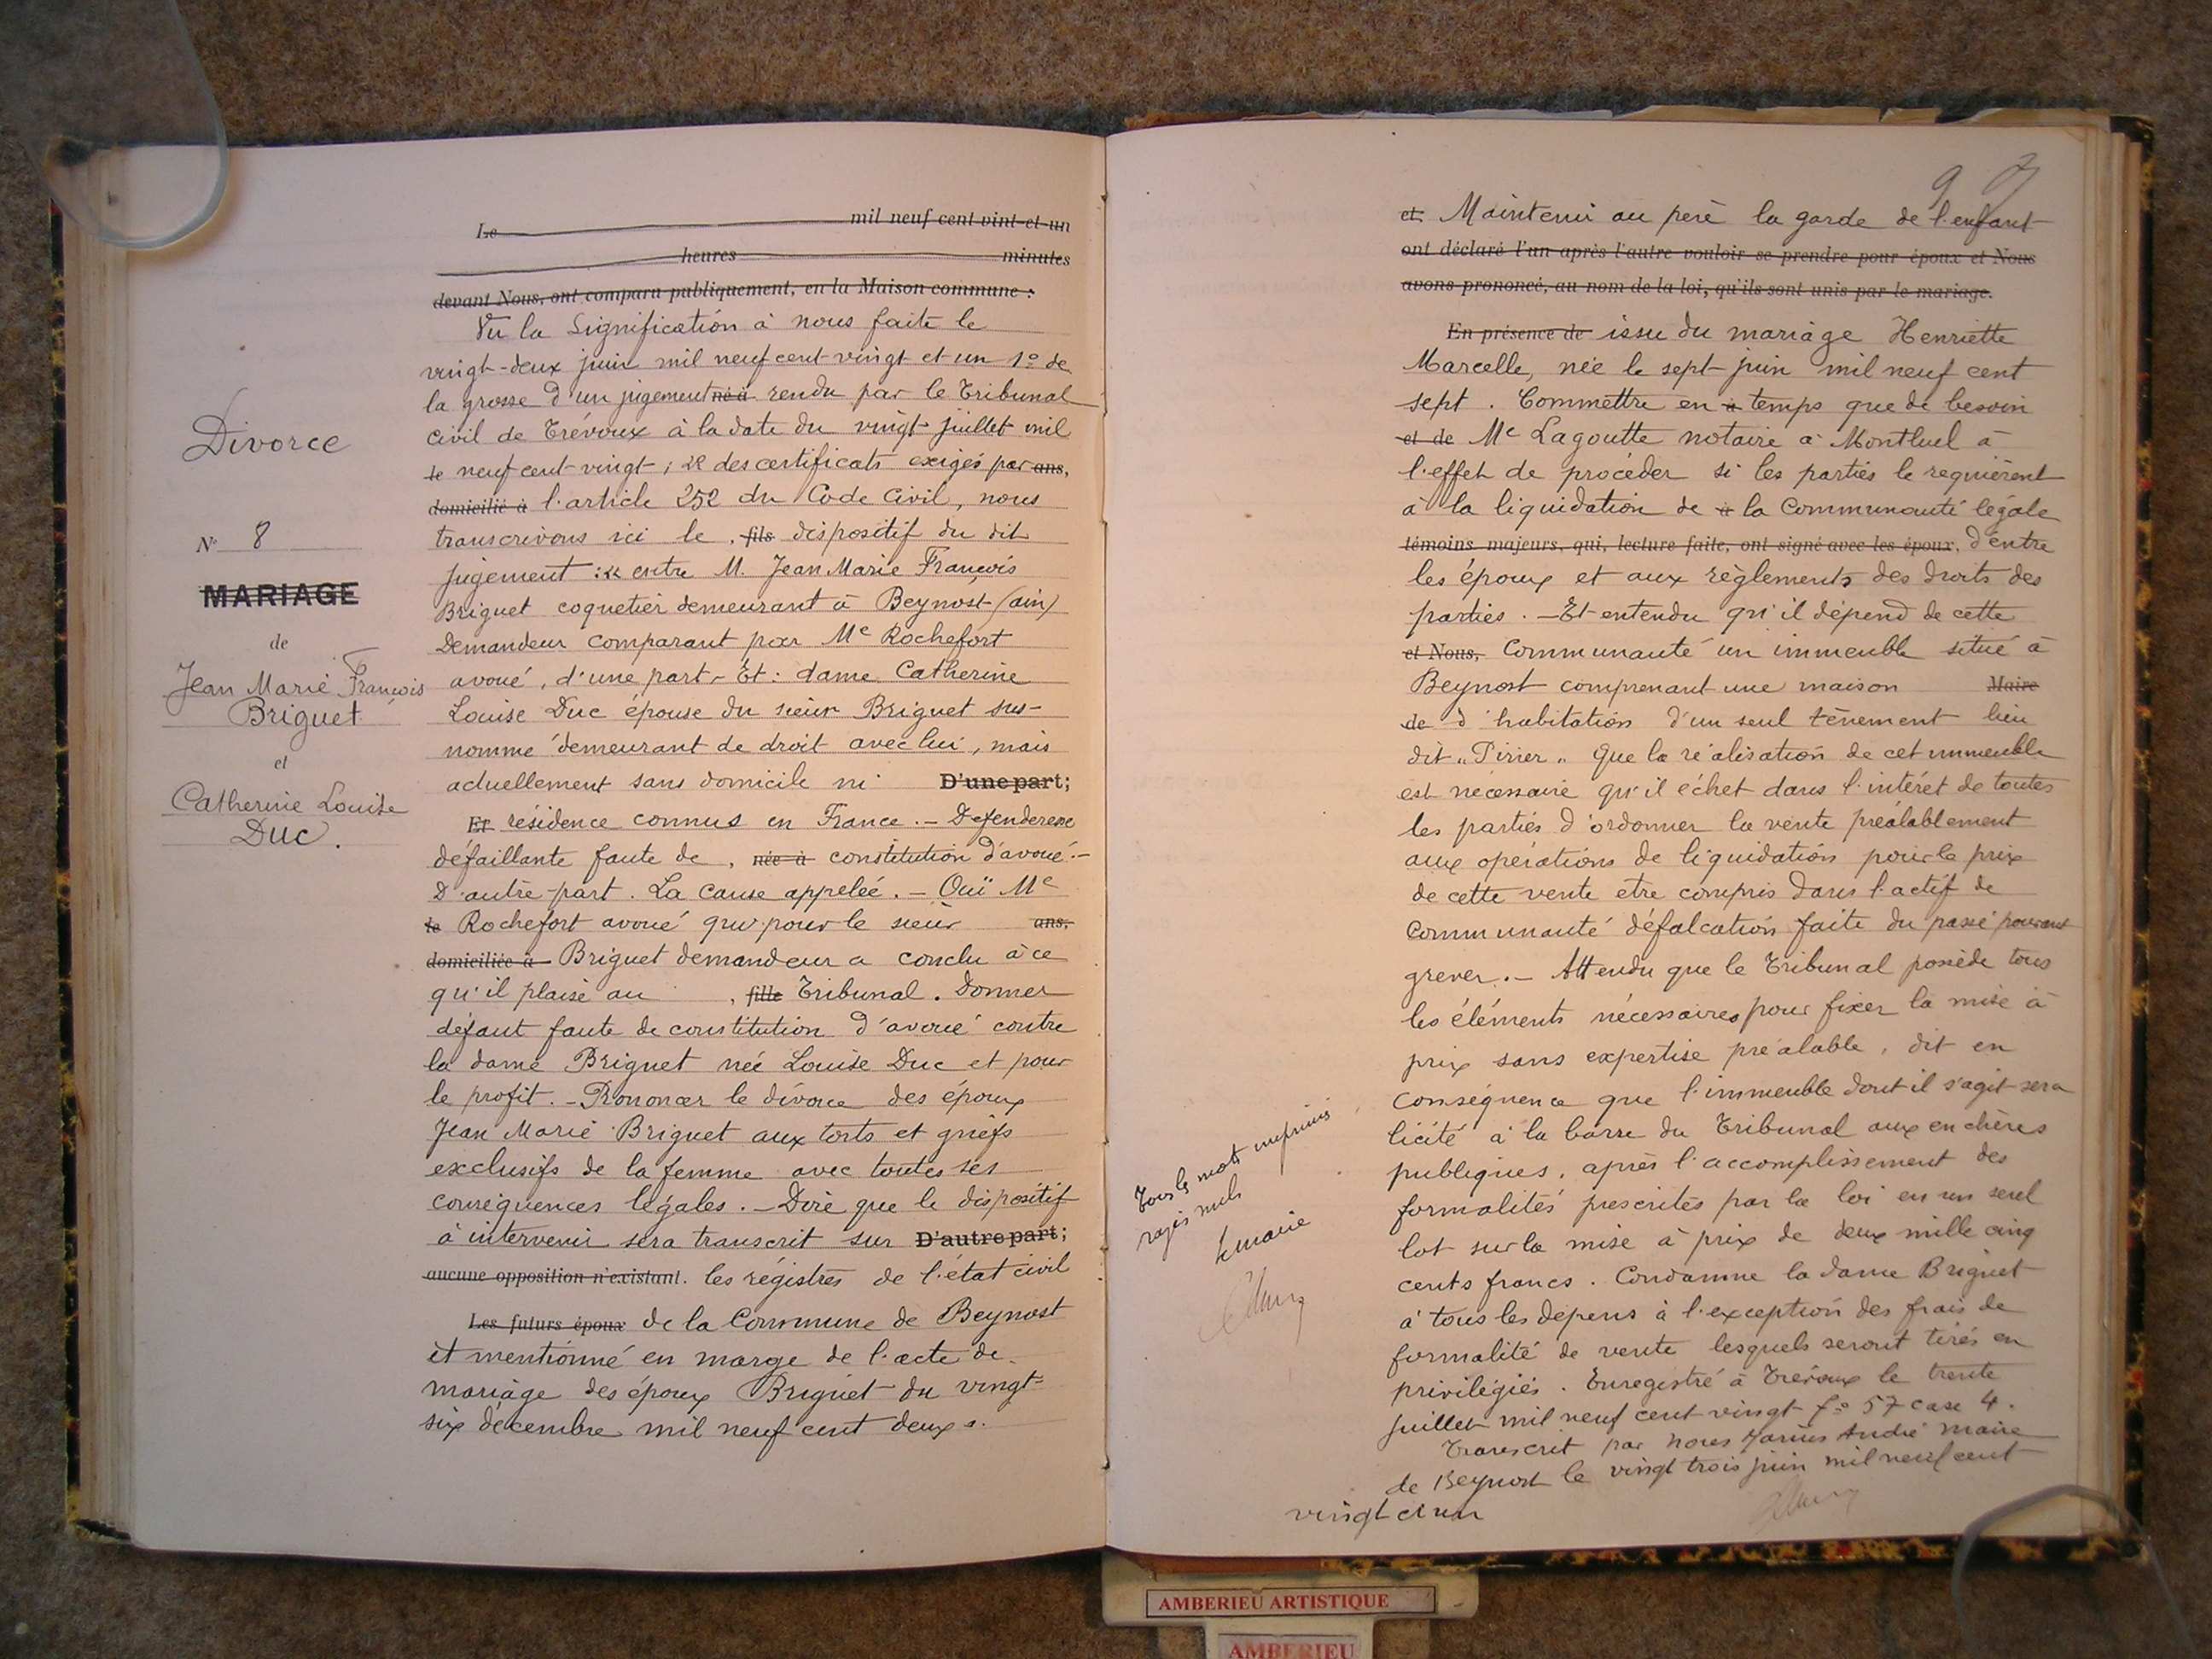 Divorce
N° 8
MARIAGE
de
Jean Marie François
Briguet
et
Catherine Louise
Duc.
Le mil neuf cent vint-et-un
heures minutes
devant Nous, ont comparu publiquement, en la Maison commune :
Vu la Signification à nous faite le
vingt-deux juin mil neuf cent vingt et un 1° de
la grosse d'un jugement né à rendu par le Tribunal
civil de Trévoux à la date du vingt juillet mil
le neuf cent vingt ; 2° des certificats exigés par ans,
domicilié à l'article 252 du Code Civil, nous
transcrivons ici le , fils dispositif du dit
jugement : entre M. Jean Marie François
Briguet coquetier demeurant à Beynost (ain)
Demandeur comparant par Me Rochefort
avoué, d'une part. Et : dame Catherine
Louise Duc épouse du sieur Briguet sus-
nommé demeurant de droit avec lui, mais
actuellement sans domicile ni D'une part;
Et résidence connus en France. - Défenderesse
défaillante faute de , née à constitution d'avoué. -
D'autre part. La cause appelée. - Ouï Me
le Rochefort avoué qui pour le sieur ans,
domiciliée à Briguet demandeur a conclu à ce
qu'il plaise au , fille Tribunal. Donner
défaut faute de constitution d'avoué contre
la dame Briguet née Louise Duc et pour
le profit. - Prononcer le divorce des époux
Jean Marie Briguet aux torts et griefs
exclusifs de la femme avec toutes ses
conséquences légales. - Dire que le dispositif
à intervenir sera transcrit sur D'autre part;
aucune opposition n'existant. les régistres de l'état civil
Les futurs époux de la Commune de Beynost
et mentionné en marge de l'acte de
mariage des époux Briguet du vingt-
six décembre mil neuf cent deux.
9
et Maintenir au père la garde de l'enfant
ont déclaré l'un après l'autre vouloir se prendre pour époux et Nous
avons prononcé, au nom de la loi, qu'ils sont unis par le mariage.
En présence de issu du mariage Henriette
Marcelle, née le sept juin mil neuf cent
sept. Commettre en à temps que de besoin
et de Me Lagoutte notaire à Montluel à
l'effet de procéder si les parties le requièrent
à la liquidation de à la Communauté légale
témoins majeurs, qui, lecture faite, ont signé avec les époux, d'entre
les époux et aux règlements des droits des
parties. - Et entendu qu'il dépend de cette
et Nous, Communauté un immeuble situé à
Beynost comprenant une maison Maire
de d'habitation d'un seul tènement lieu
dit Que la réalisation de cet immeuble
est nécessaire qu'il échet dans l'intérêt de toutes
les parties d'ordonner la vente préalablement
aux opérations de liquidation pour le prix
de cette vente etre compris dans l'actif de
Communauté défalcation faite du passé pouvant
grever. - Attendu que le Tribunal possède tous
les éléments nécessaires pour fixer la mise à
prix sans expertise préalable, dit en
Conséquence que l'immeuble dont il s'agit sera
licité à la barre du Tribunal aux enchères
publiques, après l'accomplissement des
formalités prescrites par la loi en un seul
lot sur la mise à prix de deux mille cinq
cents francs. Condamne la dame Briguet
à tous les dépens à l'exception des frais de
formalité de vente lesquels seront tirés en
privilégiés. Enregistré à Trévoux le trente
juillet mil neuf cent vingt f° 57 case 4.
Transcrit par nous Marius André maire
de Beynost le vingt trois juin mil neuf cent
vingt et un
Tous les mots imprimés
rayés nuls
Le maire
AMBERIEU ARTISTIQUE
AMBERIEU